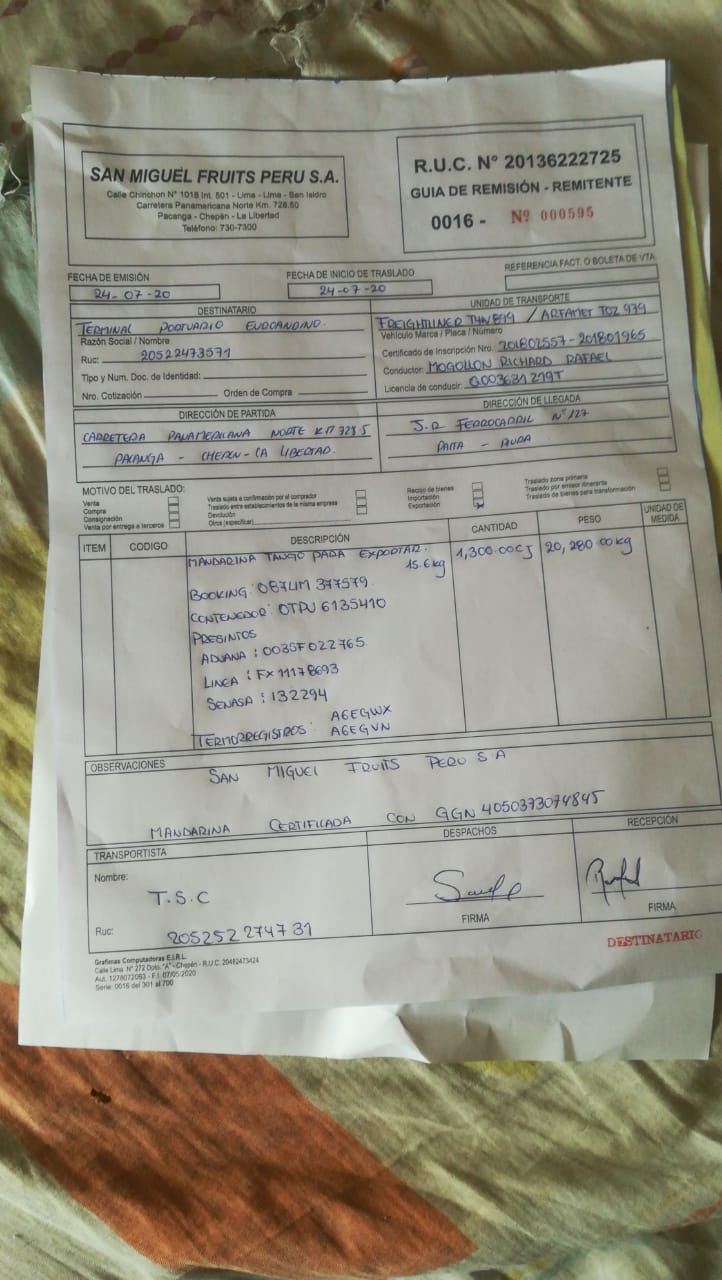 SAN MIGUEL FRUITS PERU S.A.
Calle Chinchon N° 1018 Int. 501 - Lima - Lima - San Isidro
Carretera Panamericana Norte Km. 728.50
Pacanga - Chepén - La Libertad
Teléfono: 730-7300
R.U.C. N° 20136222725
GUIA DE REMISIÓN - REMITENTE
0016 - Nº 000595
FECHA DE EMISIÓN
24-07-20
FECHA DE INICIO DE TRASLADO
24-07-20
REFERENCIA FACT. O BOLETA DE VTA.
DESTINATARIO
TERMINAL PORTUARIO EUROANDINO.
Razón Social / Nombre
Ruc: 20522473571
Tipo y Num. Doc. de Identidad:
Nro. Cotización Orden de Compra
UNIDAD DE TRANSPORTE
FREIGHTLINER T4N899 / ARFAMET TOZ 979
Vehículo Marca / Placa / Número
Certificado de Inscripción Nro.: 201802557-201801965
Conductor: MOGOLLON RICHARD RAFAEL
Licencia de conducir: Q003631219T
DIRECCIÓN DE PARTIDA
CARRETERA PANAMERICANA NORTE KM 728.5
PACANGA - CHEPEN - LA LIBERTAD.
DIRECCIÓN DE LLEGADA
J.R FERROCARRIL N° 127
PAITA - PIURA
MOTIVO DEL TRASLADO:
Venta
Compra
Consignación
Venta por entrega a terceros
Venta sujeta a confirmación por el comprador
Traslado entre establecimientos de la misma empresa
Devolución
Otros (especificar)
Recojo de bienes
Importación
Exportación x
Traslado zona primaria
Traslado por emisor itinerante
Traslado de bienes para transformación
ITEM CODIGO DESCRIPCIÓN CANTIDAD PESO UNIDAD DE MEDIDA
MANDARINA TANGO PARA EXPORTAR. 1,300.00CJ 20,280.00kg
15.6kg
BOOKING: OB7LIM 377579
CONTENEDOR: OTPU 6135410
PRESINTOS
ADUANA: 0035F022765
LINEA: FX11178693
SENASA: 132294
TERMORREGISTROS: A6EGWX
A6EGVN
OBSERVACIONES
SAN MIGUEL FRUITS PERU S A
MANDARINA CERTIFICADA CON GGN 4050373074845
TRANSPORTISTA
Nombre:
T.S.C
Ruc: 205252274731
DESPACHOS
FIRMA
RECEPCIÓN
FIRMA
Grafimas Computadoras E.I.R.L.
Calle Lima N° 272 Dpto. "A" - Chepén - R.U.C. 20482473424
Aut. 1278072063 - F.I. 07/05/2020
Serie: 0016 del 301 al 700
DESTINATARIO